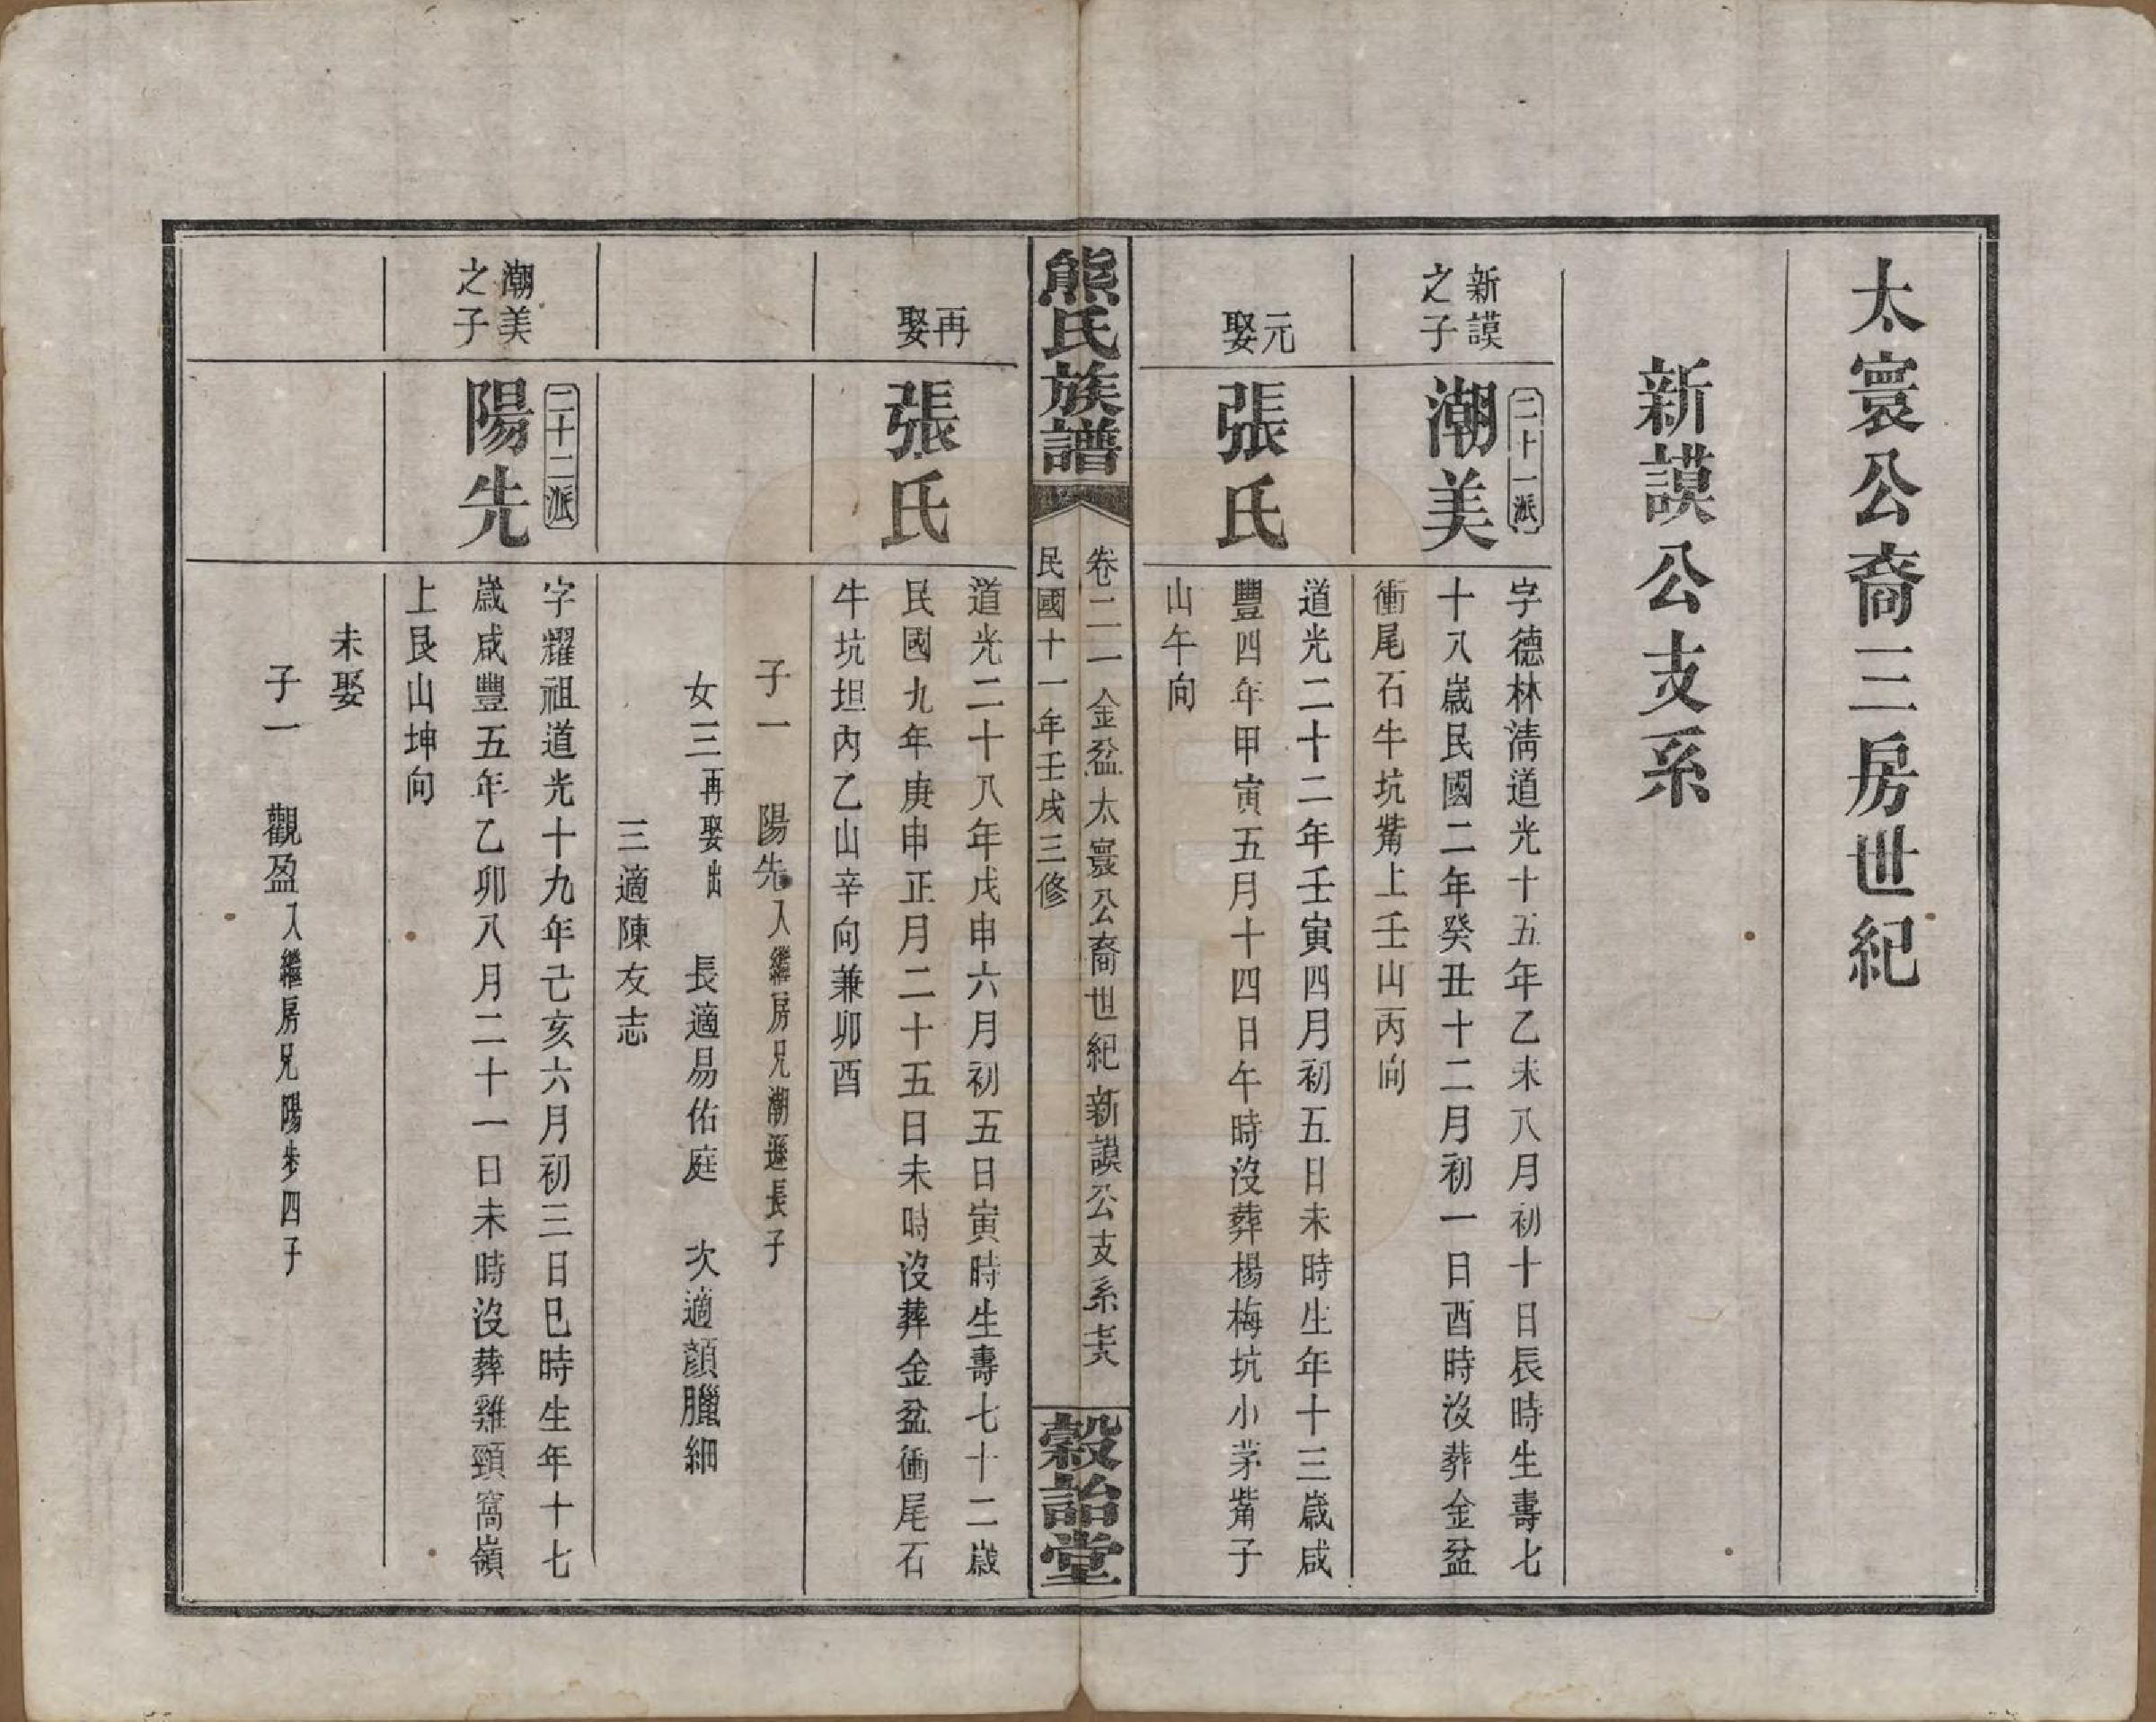 太寰公裔三房世紀
新謨公支系
新謨
之子
二十一派
潮美
字德林淸道光十五年乙未八月初十日辰時生壽七
十八歲民國二年癸丑十二月初一日酉時沒葬金盆
衝尾石牛坑觜上壬山丙向
元
娶
張氏
道光二十二年壬寅四月初五日未時生年十三歲咸
豐四年甲寅五月十四日午時沒葬楊梅坑小茅觜子
山午向
熊氏族譜
卷二一 金盆太寰公裔世紀 新謨公支系
民國十一年壬戌三修
穀詒堂
再
娶
張氏
道光二十八年戊申六月初五日寅時生壽七十二歲
民國九年庚申正月二十五日未時沒葬金盆衝尾石
牛坑坦內乙山辛向兼卯酉
子一 陽先入繼房兄潮遜長子
女三再娶出 長適易佑庭 次適顏臘細
三適陳友志
潮美
之子
二十二派
陽先
字耀祖道光十九年己亥六月初三日巳時生年十七
歲咸豐五年乙卯八月二十一日未時沒葬雞頸窩嶺
上艮山坤向
未娶
子一 觀盈入繼房兄陽步四子